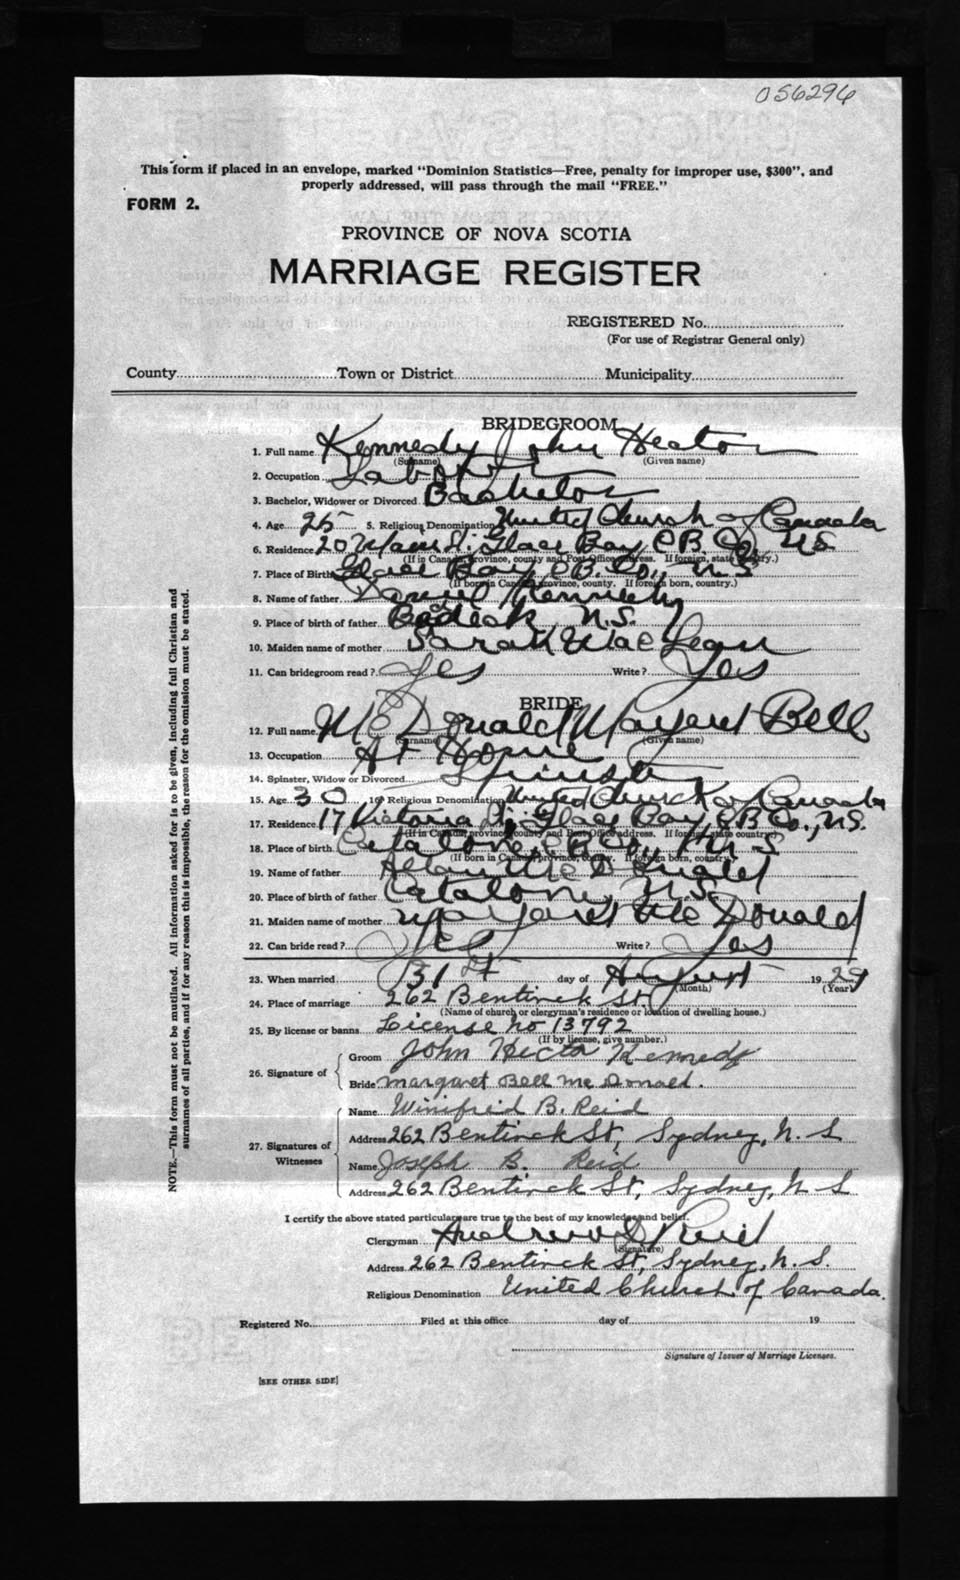 056296
This form if placed in an envelope, marked "Dominion Statistics—Free, penalty for improper use, $300", and
properly addressed, will pass through the mail "FREE."
FORM 2.
PROVINCE OF NOVA SCOTIA
MARRIAGE REGISTER
REGISTERED No.
(For use of Registrar General only)
County Town or District Municipality
BRIDEGROOM
1. Full name Kennedy John Hector
(Surname) (Given name)
2. Occupation Laborer
3. Bachelor, Widower or Divorced Bachelor
4. Age 25 5. Religious Denomination United Church of Canada
6. Residence 20 Main St. Glace Bay, C.B. Co., N.S
(If in Canada, province, county and Post Office address. If foreign, state country.)
7. Place of Birth Glace Bay, C.B. Co., N.S
(If born in Canada, province, county. If foreign born, country.)
8. Name of father Daniel Kennedy
9. Place of birth of father Badeck, N.S.
10. Maiden name of mother Sarah MacLean
11. Can bridegroom read? Yes Write? Yes
BRIDE
12. Full name McDonald Margaret Bell
(Surname) (Given name)
13. Occupation At Home
14. Spinster, Widow or Divorced Spinster
15. Age 30 16. Religious Denomination United Church of Canada
17. Residence 17 Victoria St. Glace Bay, C.B. Co., N.S.
(If in Canada, province, county and Post Office address. If foreign, state country.)
18. Place of birth Catalone, C.B. Co., N.S
(If born in Canada, province, county. If foreign born, country.)
19. Name of father Allan McDonald
20. Place of birth of father Catalone, N.S.
21. Maiden name of mother Margaret McDonald
22. Can bride read? Yes Write? Yes
23. When married 31st day of August 1929
(Month) (Year)
24. Place of marriage 262 Bentinck St.
(Name of church or clergyman's residence or location of dwelling house.)
25. By license or banns License no 13792
(If by license, give number.)
26. Signature of Groom John Hector Kennedy
Bride Margaret Bell McDonald.
27. Signatures of Witnesses Name Winifred B. Reid
Address 262 Bentinck St, Sydney, N. S
Name Joseph B. Reid
Address 262 Bentinck St, Sydney, N S
I certify the above stated particulars are true to the best of my knowledge and belief.
Clergyman Reid
(Signature)
Address 262 Bentinck St, Sydney, N. S.
Religious Denomination United Church of Canada.
Registered No. Filed at this office day of 19
Signature of Issuer of Marriage Licenses.
[SEE OTHER SIDE]
NOTE.—This form must not be mutilated. All information asked for is to be given, including full Christian and
surnames of all parties, and if for any reason this is impossible, the reason for the omission must be stated.